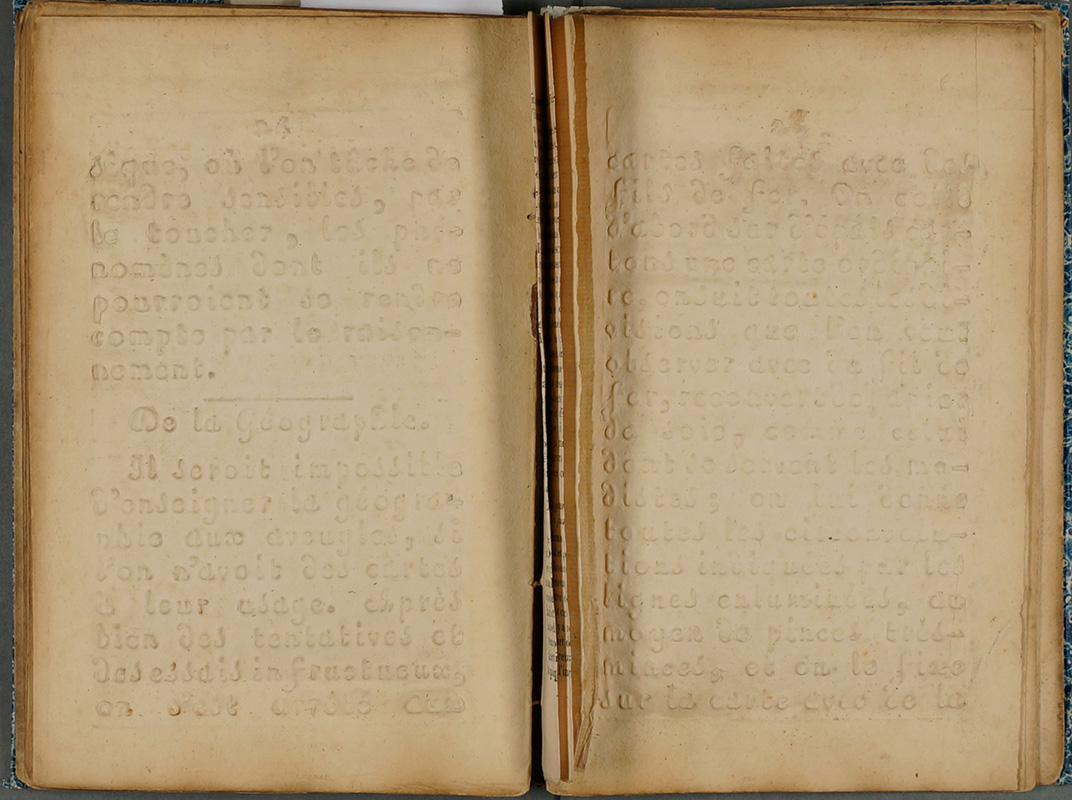 24
sique, où l'on tâche de
rendre sensibles, par
le toucher, les phé-
nomènes dont ils ne
pourroient se rendre
compte par le raison-
nement.
De la Géographie.
Il seroit impossible
d'enseigner la géogra-
phie aux aveugles, si
l'on n'avoit des cartes
à leur usage. Après
bien des tentatives et
des essais infructueux,
on s'est arrêté aux
cartes faites avec des
fils de fer. On colle
d'abord sur d'épais car-
tons une carte ordinai-
re, ensuite toutes les di-
visions que l'on veut
observer avec du fil de
fer, recouvert de
de soie, comme celui
dont se servent les mo-
distes; on lui donne
toutes les circonvolu-
tions indiquées par les
lignes enluminées, au
moyen de pinces très-
minces, et on le fixe
sur la carte avec de la